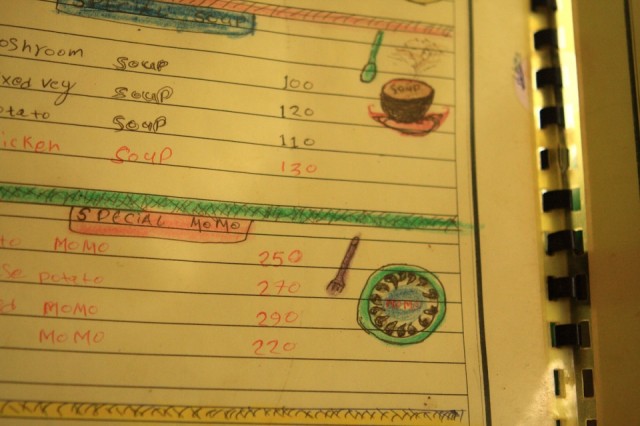 SPECIAL SOUP
oshroom SOUP 100
ixed veg SOUP 120
otato SOUP 110
icken SOUP 130
SOUP
SPECIAL MOMO
to MOMO 250
se potato 270
ed MOMO 290
MOMO 220
MOMO